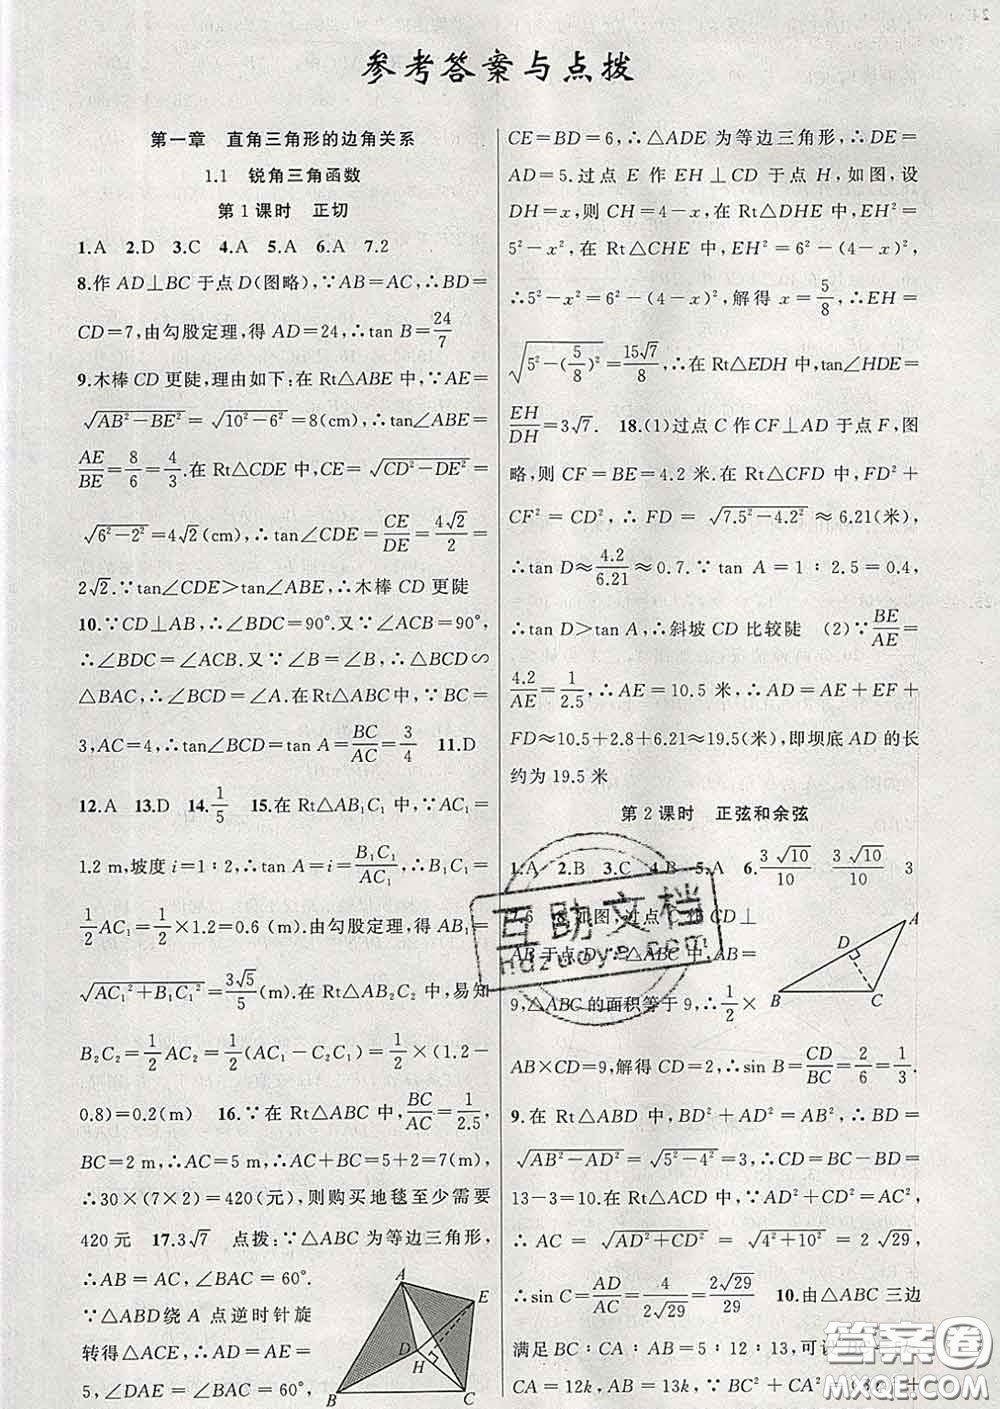 参考答案与点拨
第一章 直角三角形的边角关系
1.1 锐角三角函数
第1课时 正切
1.A 2.D 3.C 4.A 5.A 6.A 7.2
8.作 AD⊥BC 于点 D(图略),∵AB=AC,∴BD=
CD=7,由勾股定理,得 AD=24,∴tan B=24/7
9.木棒 CD 更陡,理由如下:在 Rt△ABE 中,∵AE=
√(AB²-BE²)=√(10²-6²)=8(cm),∴tan∠ABE=
AE/BE=8/6=4/3.在 Rt△CDE 中,CE=√(CD²-DE²)=
√(6²-2²)=4√2(cm),∴tan∠CDE=CE/DE=4√2/2=
2√2.∵tan∠CDE>tan∠ABE,∴木棒 CD 更陡
10.∵CD⊥AB,∴∠BDC=90°.又∵∠ACB=90°,
∴∠BDC=∠ACB.又∵∠B=∠B,∴△BCD∽
△BAC,∴∠BCD=∠A.在 Rt△ABC 中,∵BC=
3,AC=4,∴tan∠BCD=tan A=BC/AC=3/4 11.D
12.A 13.D 14.1/5 15.在 Rt△AB₁C₁ 中,∵AC₁=
1.2 m,坡度 i=1∶2,∴tan A=i=B₁C₁/AC₁,∴B₁C₁=
1/2AC₁=1/2×1.2=0.6 (m).由勾股定理,得 AB₁=
√(AC₁²+B₁C₁²)=3√5/5(m).在 Rt△AB₂C₂ 中,易知
B₂C₂=1/2AC₂=1/2(AC₁-C₂C₁)=1/2×(1.2-
0.8)=0.2(m) 16.∵在 Rt△ABC 中,BC/AC=1/2.5,
BC=2 m,∴AC=5 m,∴AC+BC=5+2=7(m),
∴30×(7×2)=420(元),则购买地毯至少需要
420元 17.3√7 点拨:∵△ABC 为等边三角形,
∴AB=AC,∠BAC=60°.
∵△ABD绕 A 点逆时针旋
转得△ACE,∴AD=AE=
5,∠DAE=∠BAC=60°,
A
E
D
H
B
C
CE=BD=6,∴△ADE为等边三角形,∴DE=
AD=5.过点 E 作 EH⊥CD 于点 H,如图,设
DH=x,则 CH=4-x,在 Rt△DHE 中,EH²=
5²-x²,在 Rt△CHE 中,EH²=6²-(4-x)²,
∴5²-x²=6²-(4-x)²,解得 x=5/8,∴EH=
√(5²-(5/8)²)=15√7/8,∴在 Rt△EDH 中,tan∠HDE=
EH/DH=3√7. 18.(1)过点 C 作CF⊥AD于点F,图
略,则 CF=BE=4.2 米.在 Rt△CFD 中,FD²+
CF²=CD²,∴FD=√(7.5²-4.2²)≈6.21(米),
∴tan D≈4.2/6.21≈0.7.∵tan A=1∶2.5=0.4,
∴tan D>tan A,∴斜坡 CD 比较陡 (2)∵BE/AE=
4.2/AE=1/2.5,∴AE=10.5 米,∴AD=AE+EF+
FD≈10.5+2.8+6.21≈19.5(米),即坝底 AD 的长
约为 19.5 米
第2课时 正弦和余弦
1.A 2.B 3.C 4.B 5.A 6.3√10/10 3√10/10 3
7.6 8.如图,过点 C 作CD⊥
AB 于点 D.∵BC=
9,△ABC 的面积等于 9,∴1/2×
AB×CD=9,解得 CD=2,∴sin B=CD/BC=2/6=1/3.
A
D
B
C
9.在 Rt△ABD 中,BD²+AD²=AB²,∴BD=
√(AB²-AD²)=√(5²-4²)=3,∴CD=BC-BD=
13-3=10.在 Rt△ACD 中,∵AD²+CD²=AC²,
∴AC=√(AD²+CD²)=√(4²+10²)=2√29,
∴sin C=AD/AC=4/(2√29)=2√29/29 10.由△ABC 三边
满足 BC∶CA∶AB=5∶12∶13,可设
CA=12k,AB=13k,∵BC²+CA²
互助文档
hdzuoye.com
答案圈
MXQE.COM